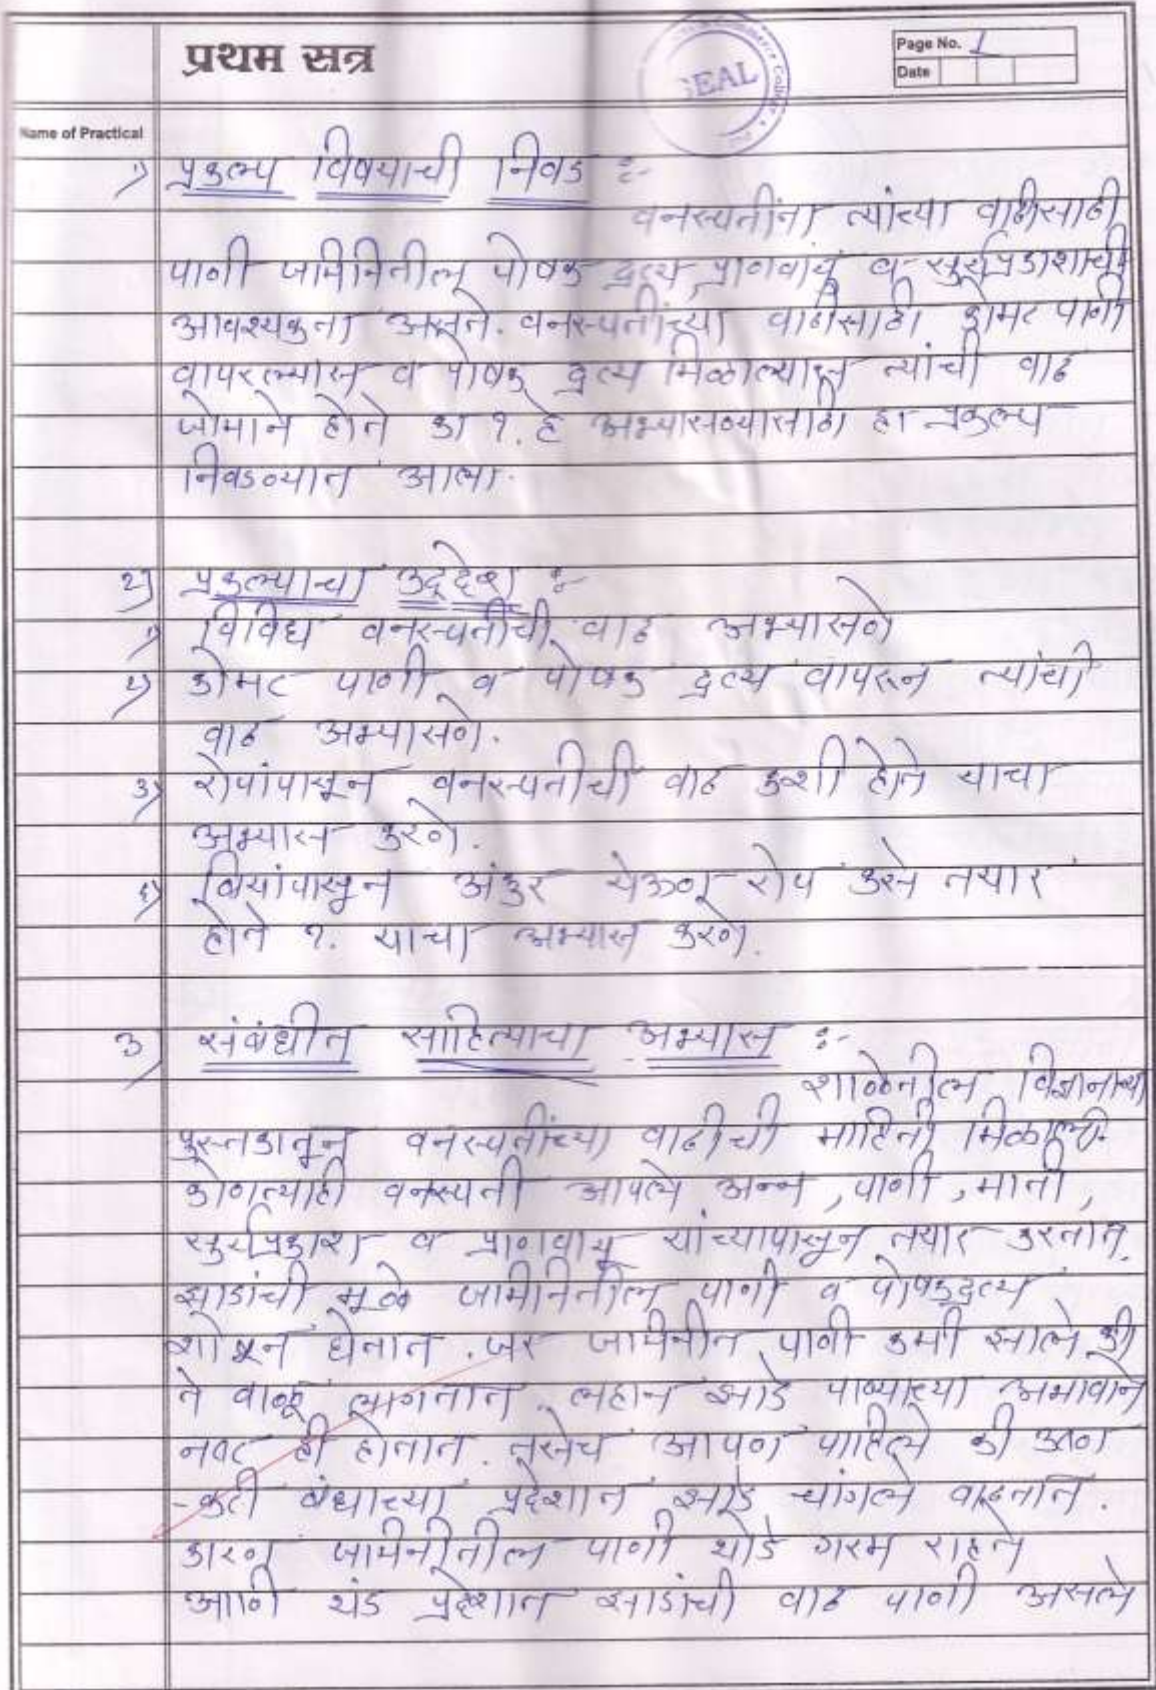 प्रथम सत्र
SEAL
Page No. 1
Date
Name of Practical
१) प्रकल्प विषयाची निवड :-
वनस्पतींना त्यांच्या वाढीसाठी
पाणी जमिनितील पोषक द्रव्य प्राणवायु व सुर्यप्रकाशाची
आवश्यकता असते. वनस्पतींच्या वाढीसाठी कोमट पाणी
वापरल्यास व पोषक द्रव्य मिळाल्यास त्यांची वाढ
जोमाने होते का ?. हे अभ्यासण्यासाठी हा प्रकल्प
निवडण्यात आला.
२) प्रकल्पाचा उद्देश :-
१) विविध वनस्पतीची वाढ अभ्यासणे
२) कोमट पाणी व पोषक द्रव्य वापरून त्यांची
वाढ अभ्यासणे.
३) रोपांपासून वनस्पतीची वाढ कशी होते याचा
अभ्यास करणे.
४) बियांपासून अंकुर येऊन रोप कसे तयार
होते ?. याचा अभ्यास करणे.
३) संबंधीत साहित्याचा अभ्यास :-
शाळेतील विज्ञानाच्या
पुस्तकातून वनस्पतींच्या वाढीची माहिती मिळाली.
कोणत्याही वनस्पती आपले अन्न, पाणी, माती,
सुर्यप्रकाश व प्राणवायु यांच्यापासून तयार करतात.
झाडांची मूळे जमिनितील पाणी व पोषकद्रव्य
शोषून घेतात. जर जमिनीत पाणी कमी झाले की
ते वाळू लागतात. लहान झाडे पाण्याच्या अभावाने
नष्ट ही होतात. तसेच आपण पाहिले की उष्ण
-कटी बंधाच्या प्रदेशात झाडे चांगले वाढतात.
कारण जमिनीतील पाणी थोडे गरम राहते
आणि थंड प्रदेशात झाडांची वाढ पाणी असले